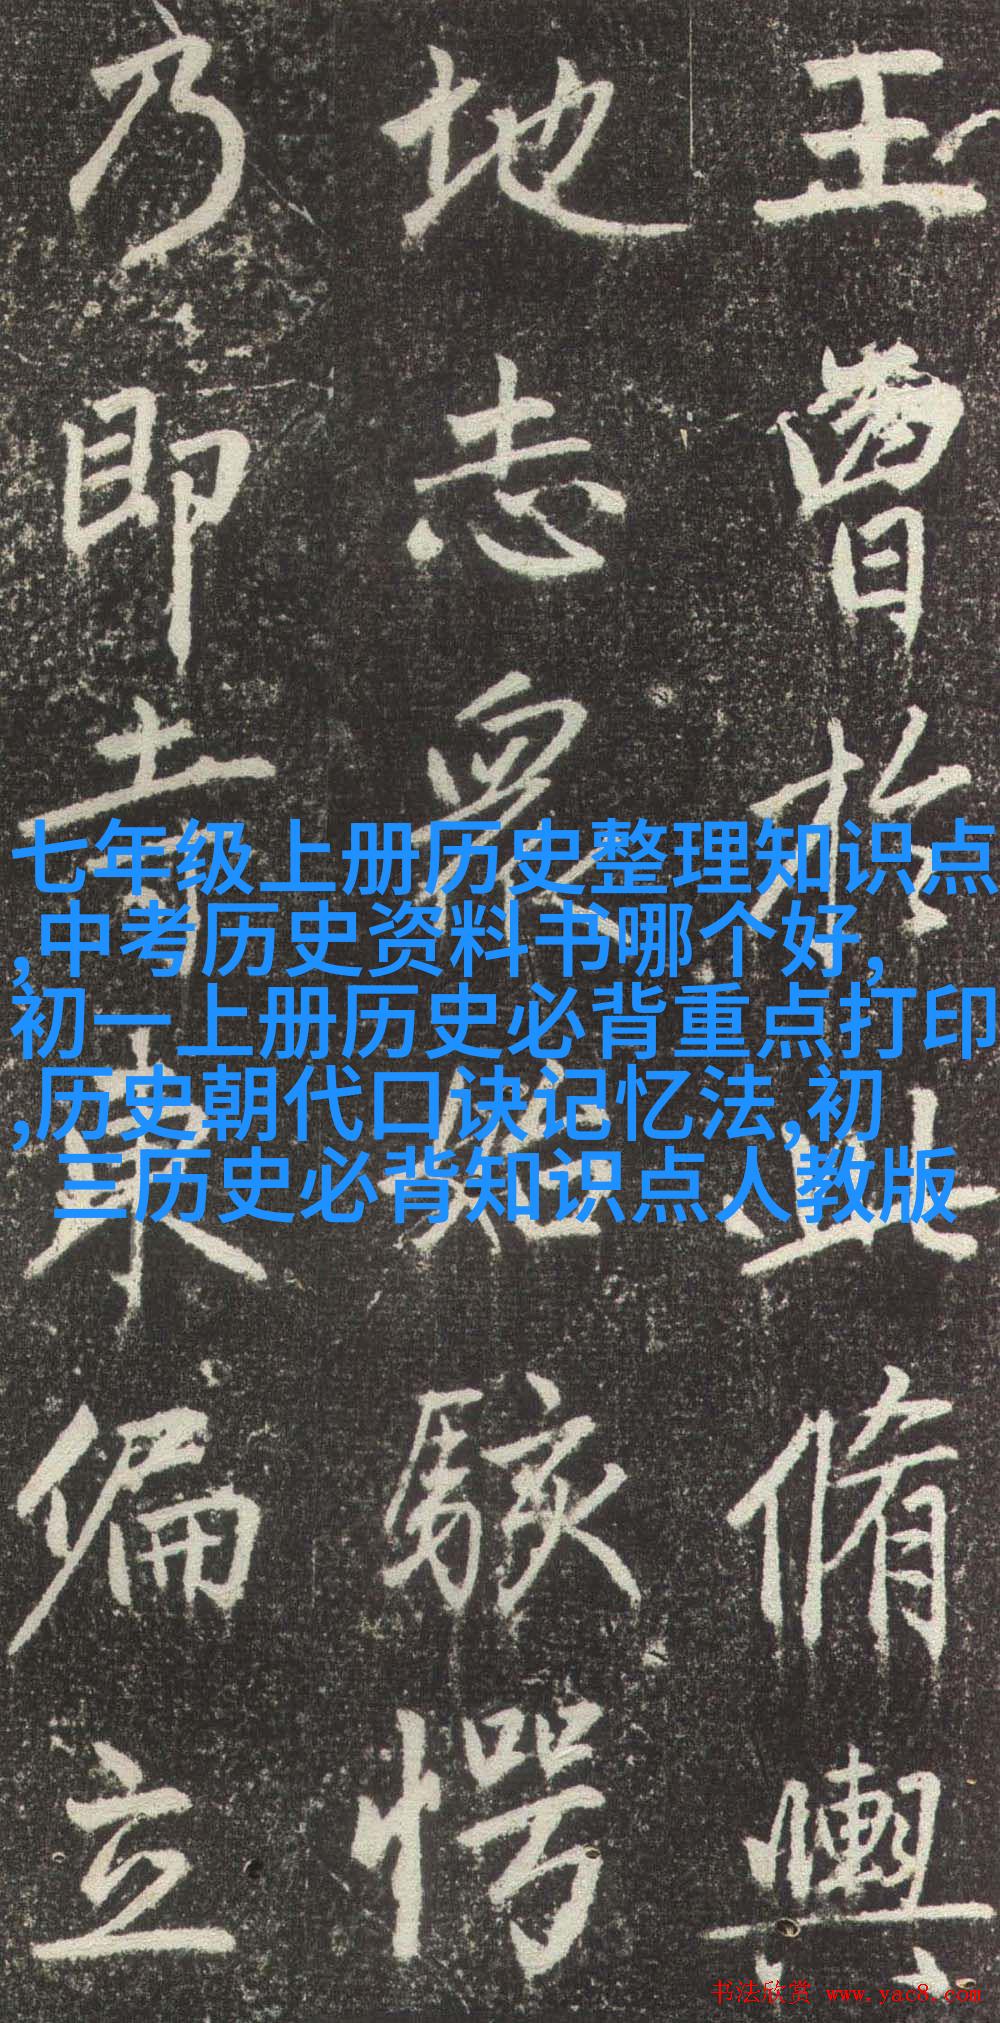 王曾於此脩輿
地志衆始駭愕
乃即寺東偏立
七年级上册历史整理知识点
,中考历史资料书哪个好,
初一上册历史必背重点打印
,历史朝代口诀记忆法,初
三历史必背知识点人教版
书法欣赏 www.yac8.com